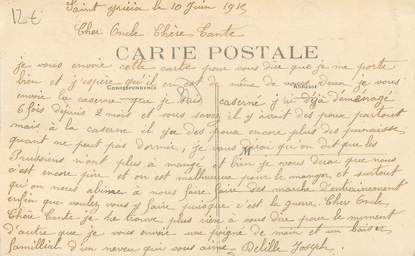 12€
Saint Yrieix le 10 Juin 1915
Cher Oncle Chère Tante
CARTE POSTALE
CORRESPONDANCE
ADRESSE
je vous envoie cette carte pour vous dire que je me porte
bien et j'espère qu'il en est de même de vous deux je vous
envoie la caserne que je suis caserné j'ai déjà déménagé
6 fois depuis 2 mois et vous savez il y avait des poux partout
mais à la caserne il y a des poux encore plus des punaises
quant me peut pas dormir, je vous dirai qu'on dit que les
Prussiens n'ont plus à manger et bien je vous dirai que nous
c'est encore pire et on est malheureux pour le manger et surtout
qu'on nous abime à nous faire faire des marche d'entrainement
enfin que voulez vous y faire puisque c'est la guerre. Cher Oncle
Chère Tante je ne trouve plus rien à vous dire pour le moment
d'autre que je vous envoie une poigné de main et un baiser
familliall d'un neveu qui vous aime Delille Joseph.